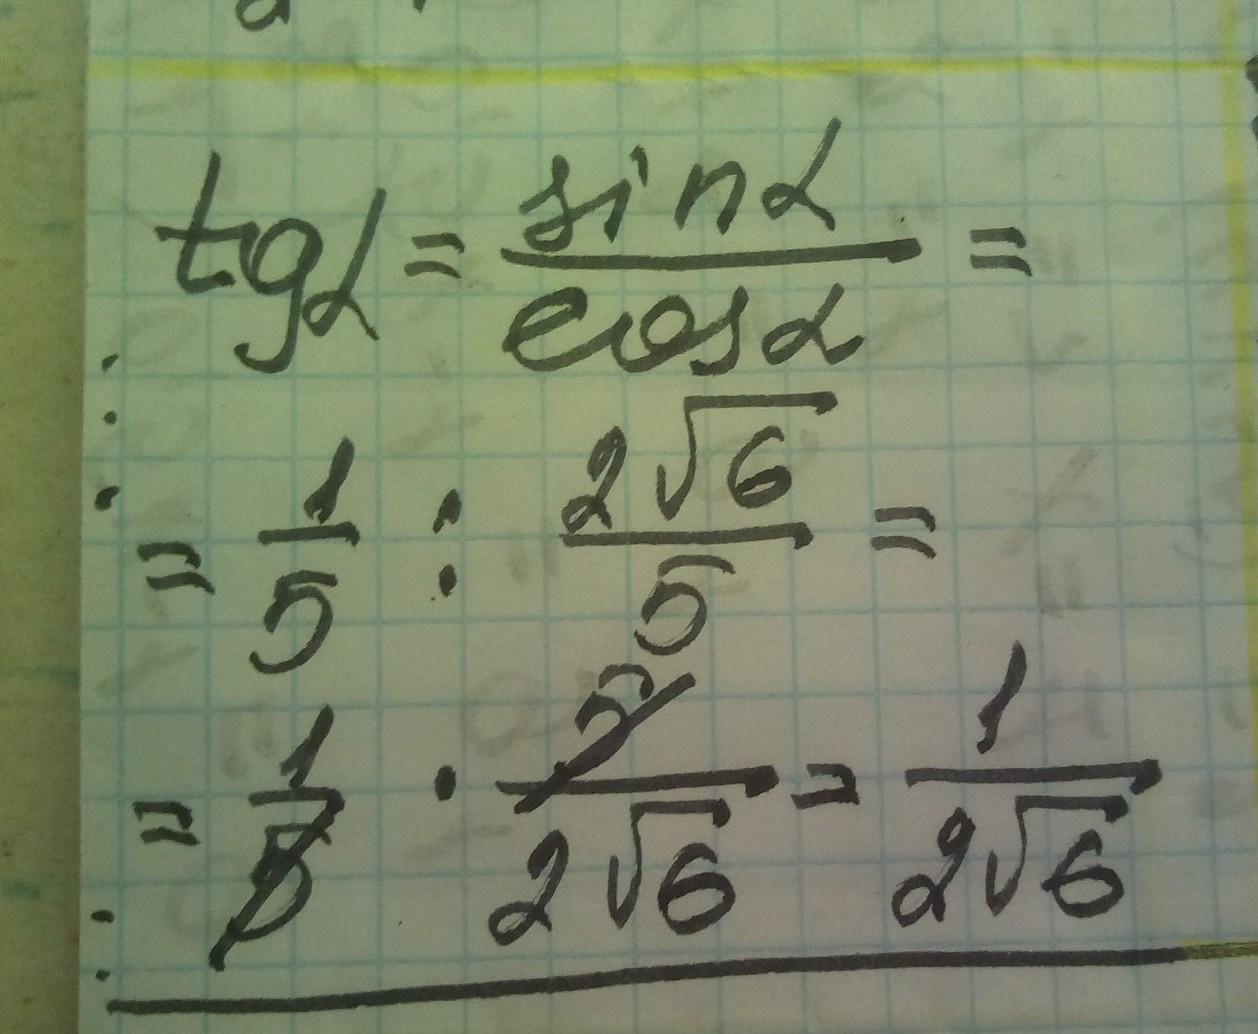 tgα = sinα / cosα =
= 1/5 : 2√6/5 =
= 1/5 · 5/2√6 = 1/2√6